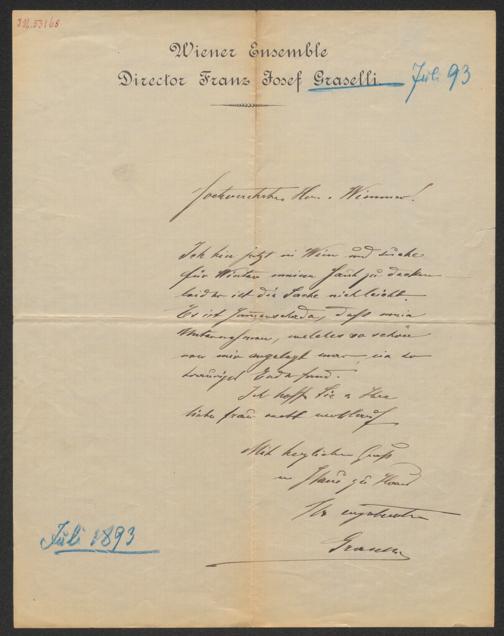 I.N. 53168
Wiener Ensemble
Director Franz Josef Graselli
Juli 93
Hochverehrter Herr Wimmer!
Ich bin jetzt in Wien und suche
für Winter meinen zu decken
leider ist die Sache nicht leicht.
Es ist jammerschade, daß mein
Unternehmen, welches so schön
von mir angelegt war, ein so
trauriges Ende fand.
Ich hoffe Sie u Ihre
liebe Frau wohlauf
Mit herzlichem Gruß
u zu Hand
Ihr ergebenster
Graselli
Juli 1893